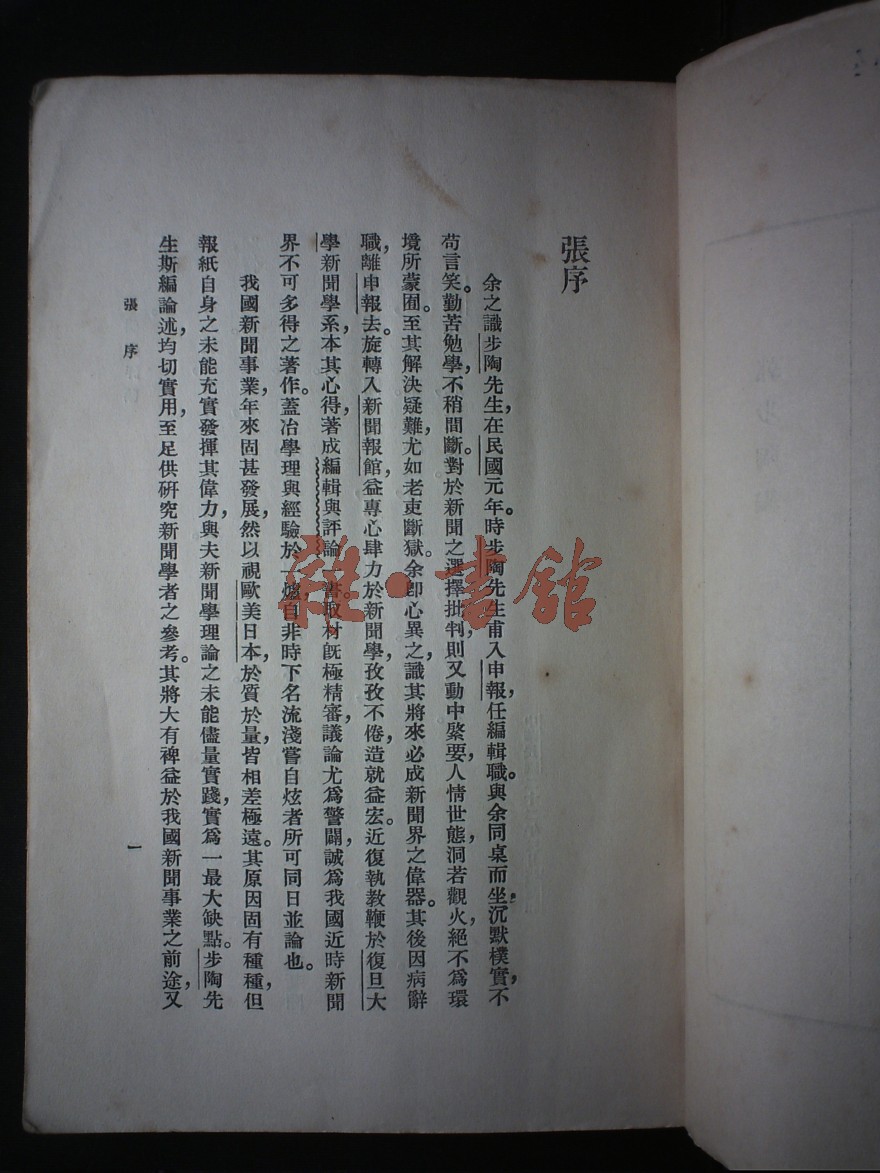 張序
余之識步陶先生，在民國元年。時步陶先生甫入申報，任編輯職。與余同桌而坐，沉默樸實，不
苟言笑。勤苦勉學，不稍間斷。對於新聞之選擇批判，則又動中綮要，人情世態，洞若觀火，絕不爲環
境所蒙囿。至其解決疑難，尤如老吏斷獄。余卽心異之，識其將來必成新聞界之偉器。其後因病辭
職，離申報去。旋轉入新聞報館，益專心肆力於新聞學，孜孜不倦，造就益宏。近復執教鞭於復旦大
學新聞學系，本其心得，著成編輯與評論一書。取材旣極精審，議論尤爲警闢，誠爲我國近時新聞
界不可多得之著作。蓋冶學理與經驗於一爐，自非時下名流淺嘗自炫者所可同日並論也。
我國新聞事業，年來固甚發展，然以視歐美日本，於質於量，皆相差極遠。其原因固有種種，但
報紙自身之未能充實發揮其偉力，與夫新聞學理論之未能儘量實踐，實爲一最大缺點。步陶先
生斯編論述，均切實用，至足供研究新聞學者之參考。其將大有裨益於我國新聞事業之前途，又
張序
一
雜·書館